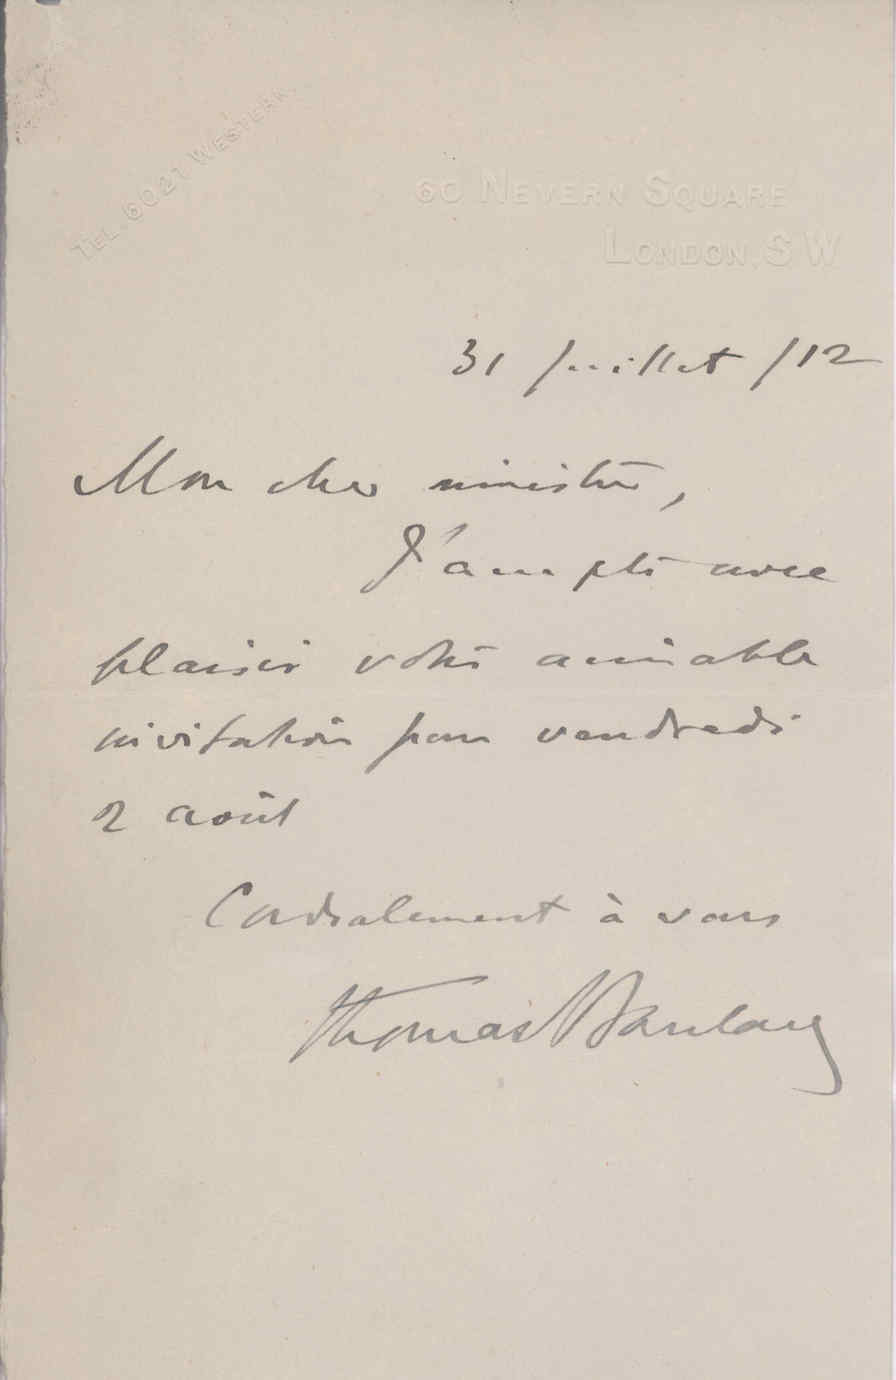 TEL. 6021 WESTERN.
60 NEVERN SQUARE
LONDON, S.W
31 Juillet /12
Mon cher ministre,
J'accepte avec
plaisir votre aimable
invitation pour vendredi
2 août
Cordialement à vous
Thomas Barclay